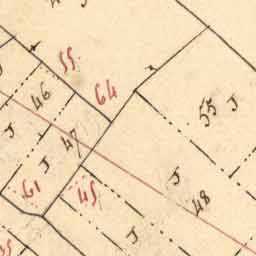 55.
64
46
J
55 J
J
47
J
J
61
45
48
J